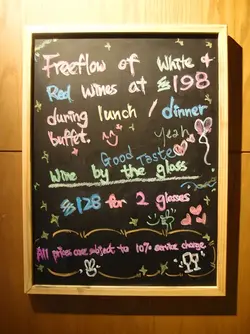 Freeflow of White &
Red Wines at $198
during lunch / dinner
buffet.
Yeah
Good Taste
Wine by the glass
$128 for 2 glasses
All prices are subject to 10% service charge